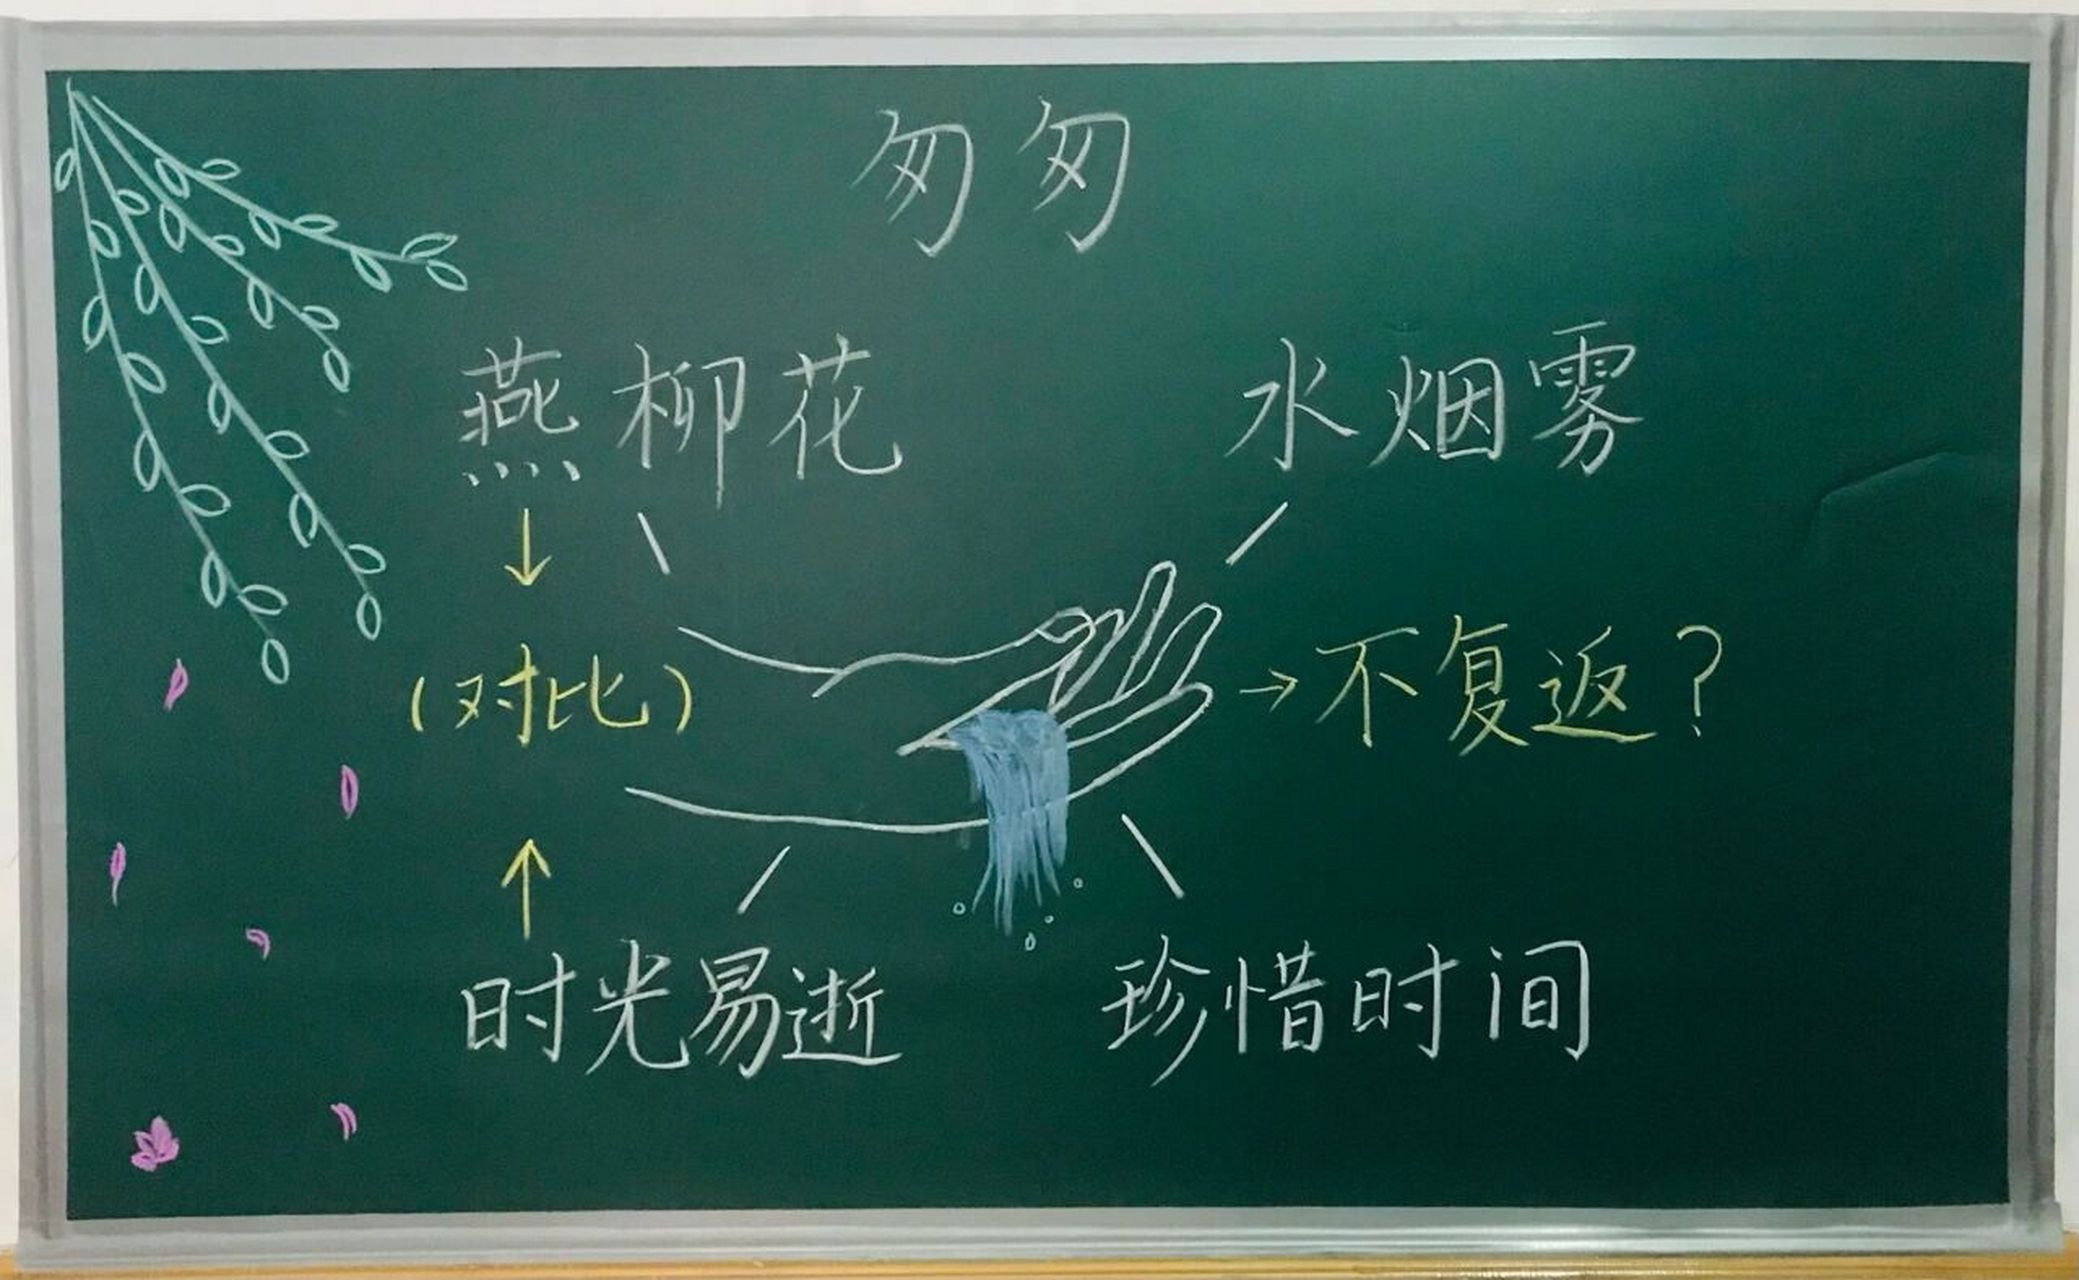 匆匆
燕柳花 水烟雾
(对比) →不复返？
时光易逝 珍惜时间